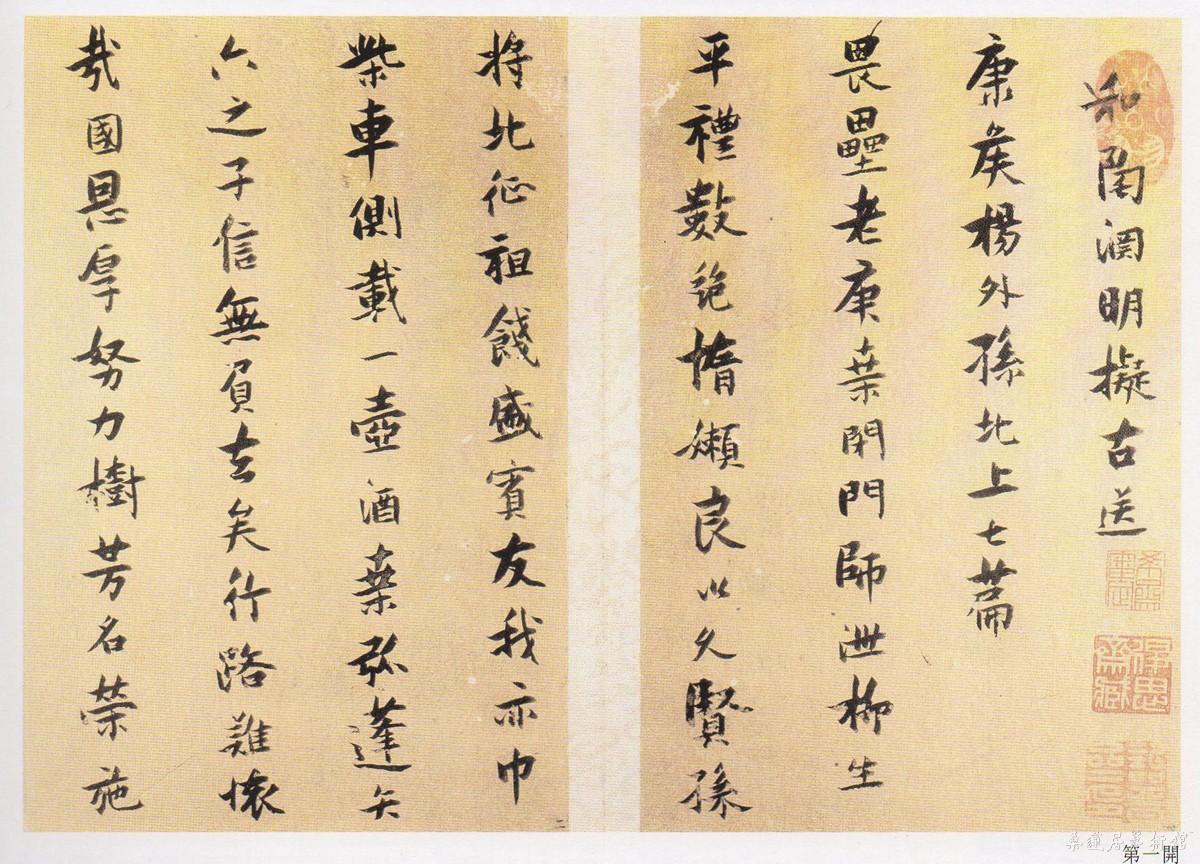 和陶淵明擬古送
康侯楊外孫北上七篇
畏壘老庚桒閉門師泄柳生
平禮數絶惰嬾良以久賢孫
将北征祖餞盛賓友我亦巾
柴車側載一壺酒桒弧蓬矢
六之子信無負去矣行路難懷
哉國恩厚努力樹芳名榮施
第一開